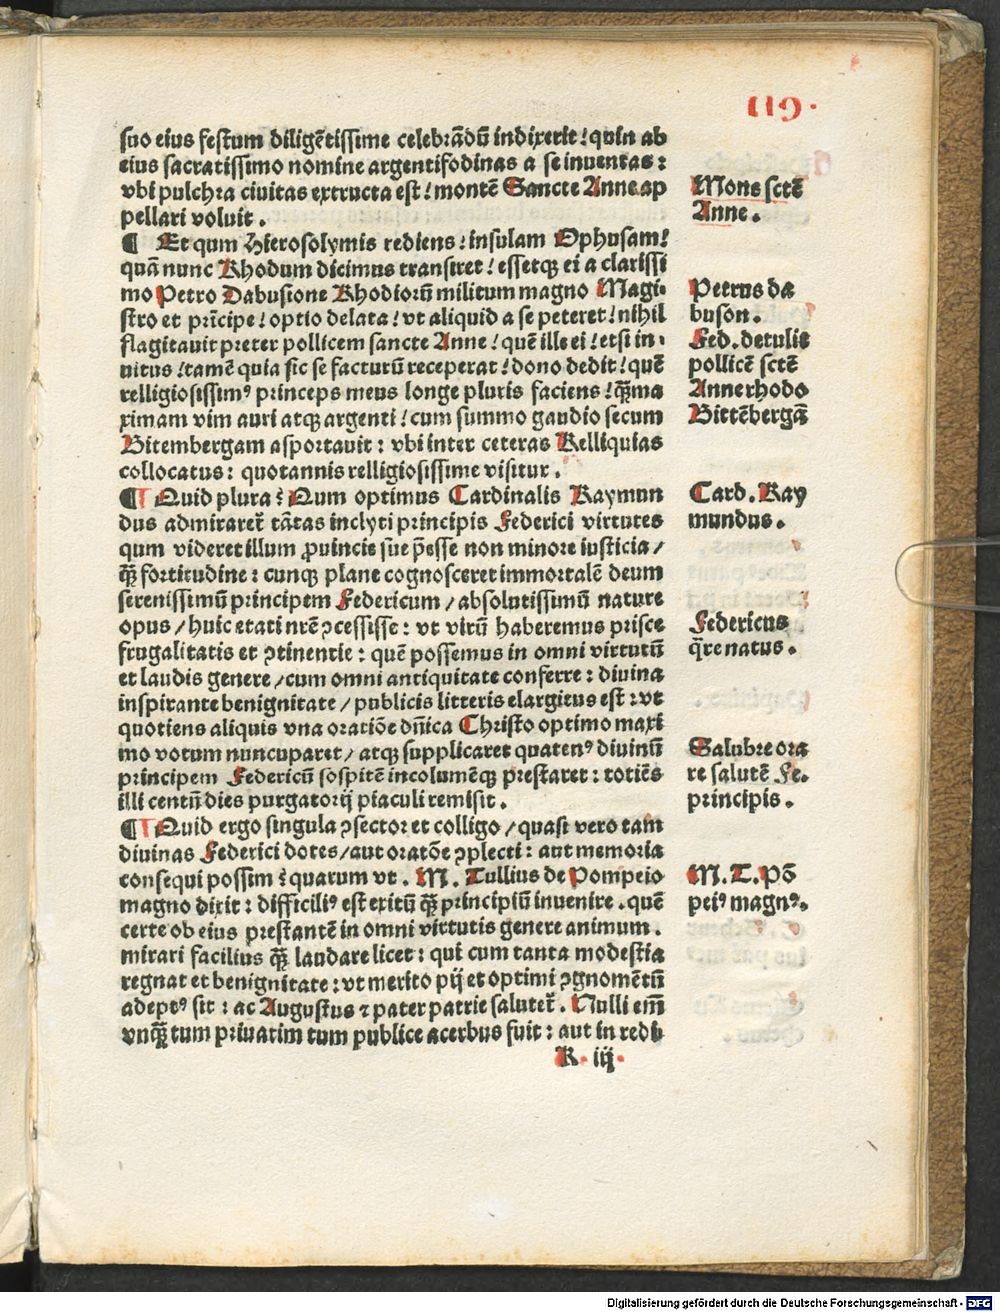 119.
suo eius festum diligētissime celebrādū indixerit! quin ab
eius sacratissimo nomine argentifodinas a se inuentas:
vbi pulchra ciuitas extructa est! montē Sancte Anne ap
pellari voluit.
¶ Et qum Hierosolymis rediens! insulam Ophusam!
quā nunc Rhodum dicimus transiret! essetqꝫ ei a clarissi
mo Petro Dabusione Rhodiorū militum magno Magi-
stro et prīcipe! optio delata! vt aliquid a se peteret! nihil
flagitauit preter pollicem sancte Anne! quē ille ei! etsi in-
uitus! tamē quia sic se facturū receperat! dono dedit! quē
relligiosissimꝰ princeps meus longe pluris faciens! qꝫ̄ ma
ximam vim auri atqꝫ argenti! cum summo gaudio secum
Bitembergam asportauit: vbi inter ceteras Relliquias
collocatus: quotannis relligiosissime visitur.
¶ Quid plura? Num optimus Cardinalis Raymun
dus admiraret᷑ tātas inclyti principis Federici virtutes
qum videret illum ꝓuincie sue p̄esse non minore iusticia/
qꝫ̄ fortitudine: cunqꝫ plane cognosceret immortalē deum
serenissimū principem Federicum/ absolutissimū nature
opus/ huic etati nr̄e ꝯcessisse: vt virū haberemus prisce
frugalitatis et ꝯtinentie: quē possemus in omni virtutū
et laudis genere/ cum omni antiquitate conferre: diuina
inspirante benignitate/ publicis litteris elargitus est: vt
quotiens aliquis vna oratiōe dn̄ica Christo optimo maxi
mo votum nuncuparet/ atqꝫ supplicaret quatenꝰ diuinū
principem Federicū sospitē incolumēqꝫ prestaret: totiēs
illi centū dies purgatorij piaculi remisit.
¶ Quid ergo singula ꝯsector et colligo/ quasi vero tam
diuinas Federici dotes/ aut oratōe ꝯplecti: aut memoria
consequi possim? quarum vt. M. Tullius de Pompeio
magno dixit: difficiliꝰ est exitū qꝫ̄ principiū inuenire. quē
certe ob eius prestantē in omni virtutis genere animum.
mirari facilius qꝫ̄ laudare licet: qui cum tanta modestia
regnat et benignitate: vt merito pij et optimi ꝯgnomētū
adeptꝰ sit: ac Augustus ⁊ pater patrie salutet᷑. Nulli em̄
vnqꝫ̄ tum priuatim tum publice acerbus fuit: aut in redi
K. iij.
Mons sctē
Anne.
Petrus da
buson.
Fed. detulit
pollicē sctē
Anne rhodo
Bittēbergā
Card. Ray
mundus.
Federicus
q̄re natus.
Salubre ora
re salutē Fe.
principis.
M. T. Pō
peiꝰ magnꝰ.
Digitalisierung gefördert durch die Deutsche Forschungsgemeinschaft - DFG